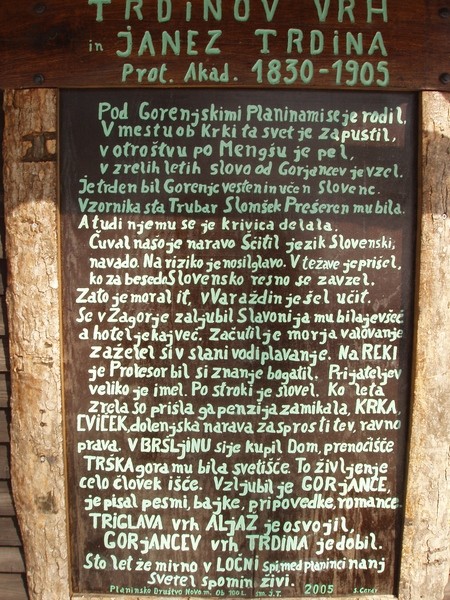 TRDINOV VRH
in JANEZ TRDINA
Prof. Akad. 1830-1905
Pod Gorenjskimi Planinami se je rodil,
V mestu ob Krki ta svet je zapustil,
v otroštvu po Mengšu je pel,
v zrelih letih slovo od Gorjancev je vzel.
Je trden bil Gorenjc vesten in učen Slovenc.
Vzornika sta Trubar Slomšek Prešeren mu bila.
A tudi njemu se je krivica delala.
Čuval našo je naravo Ščitil jezik Slovenski,
navado. Na riziko je nosil glavo. V težave je prišel,
ko za besedo Slovensko resno se zavzel.
Zato je moral it, v Varaždin je šel učit.
Se v Zagorje zaljubil Slavonija mu bila je všeč
a hotel je kaj več. Začutil je morja valovanje
zaželel si v slani vodi plavanje. Na REKI
je Profesor bil si znanje bogatil. Prijateljev
veliko je imel. Po stroki je slovel. Ko leta
zrela so prišla ga penzija zamikala, KRKA,
CVIČEK, dolenjska narava za sprostitev, ravno
prava. V BRŠLJINU si je kupil Dom, prenočišče
TRŠKA gora mu bila svetišče. To življenje
celo človek išče. Vzljubil je GORJANCE,
je pisal pesmi, bajke, pripovedke, romance.
TRIGLAVA vrh ALJAŽ je osvojil,
GORJANCEV vrh TRDINA je dobil.
Sto let že mirno v LOČNI spi, med planinci nanj
svetel spomin živi.
Planinsko Društvo Novo m. Ob 100 L. sm. J.T. 2005